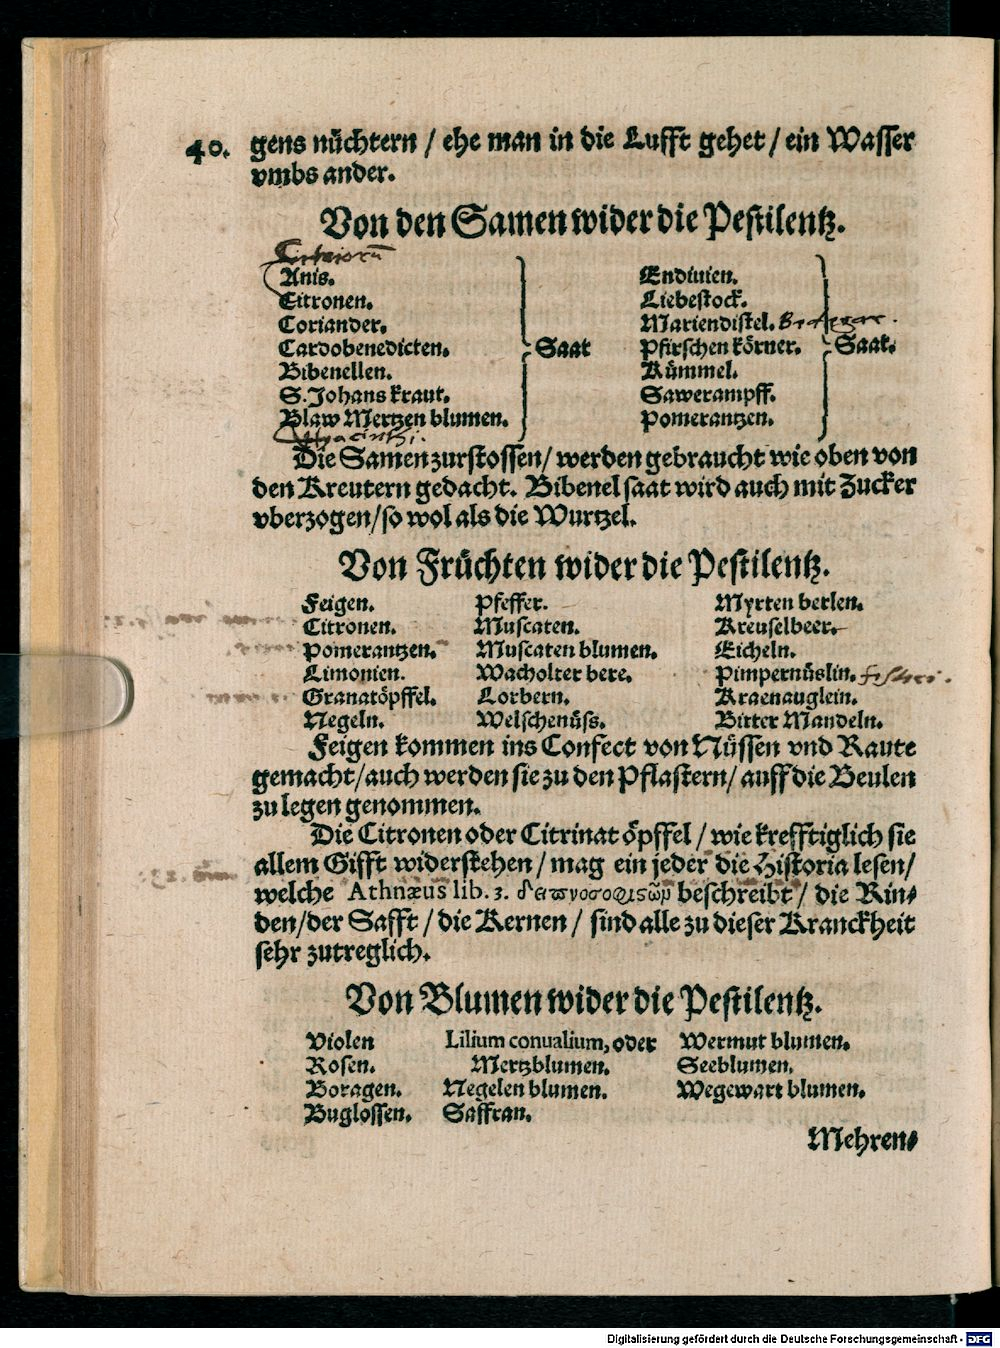 40. gens nüchtern / ehe man in die Lufft gehet / ein Wasser
vmbs ander.
Von den Samen wider die Pestilentz.
Anis.
Citronen.
Coriander.
Cardobenedicten.
Bibenellen.
S. Johans kraut.
Blaw Mertzen blumen.
Hyacinthi.
Saat
Endiuien.
Liebestock.
Mariendistel.
Pfirschen körner.
Kümmel.
Sawerampff.
Pomerantzen.
Saat.
Die Samen zurstossen / werden gebraucht wie oben von
den Kreutern gedacht. Bibenel saat wird auch mit Zucker
vberzogen / so wol als die Wurtzel.
Von Früchten wider die Pestilentz.
Feigen.
Citronen.
Pomerantzen.
Limonien.
Granatöpffel.
Negeln.
Pfeffer.
Muscaten.
Muscaten blumen.
Wacholter bere.
Lorbern.
Welschenüss.
Myrten berlen.
Kreuselbeer.
Eicheln.
Pimpernüslin.
Kraenauglein.
Bitter Mandeln.
Feigen kommen ins Confect von Nüssen vnd Raute
gemacht / auch werden sie zu den Pflastern / auff die Beulen
zu legen genommen.
Die Citronen oder Citrinat öpffel / wie krefftiglich sie
allem Gifft widerstehen / mag ein jeder die Historia lesen /
welche Athnæus lib. 3. δειπνοσοφιστῶν beschreibt / die Rin⸗
den / der Safft / die Kernen / sind alle zu dieser Kranckheit
sehr zutreglich.
Von Blumen wider die Pestilentz.
Violen
Rosen.
Boragen.
Buglossen.
Lilium conualium, oder
Mertzblumen.
Negelen blumen.
Saffran.
Wermut blumen.
Seeblumen.
Wegewart blumen.
Mehren⸗
Digitalisierung gefördert durch die Deutsche Forschungsgemeinschaft - DFG